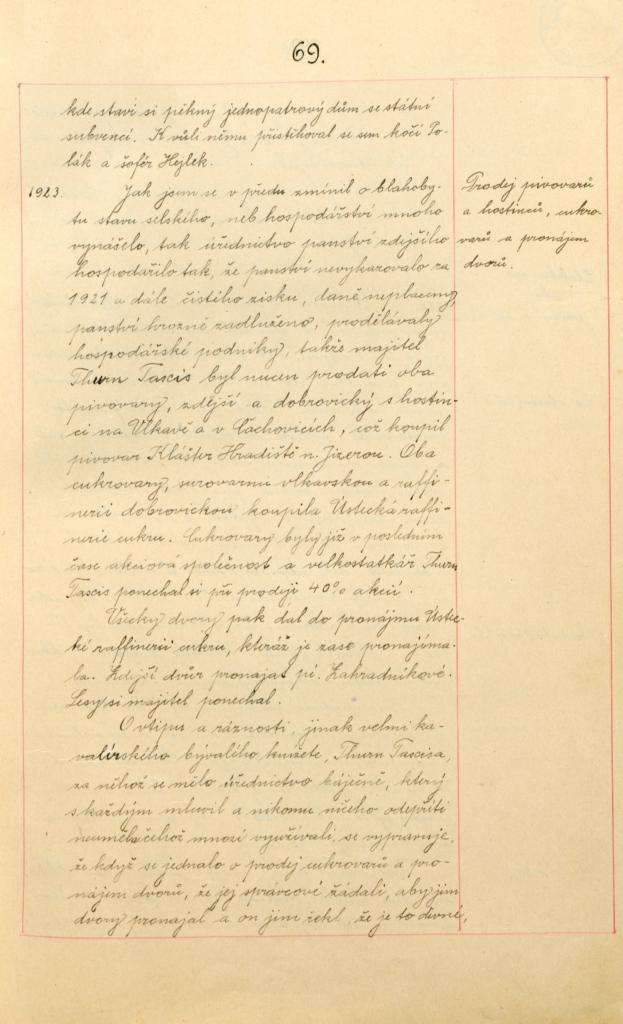 69.
kde staví si pěkný jednopatrový dům se státní
subvencí. K vůli němu přistěhoval se sem kočí Po-
lák a šofér Hejlek.
1923.
Jak jsem se v předu zmínil o blahoby-
tu stavu selského, neb hospodářství mnoho
vynášelo, tak úřednictvo panství zdejšího
hospodařilo tak, že panství nevykazovalo za
1921 a dále čistého zisku, daně neplaceny,
panství hrozně zadluženo, prodělávaly
hospodářské podniky, takže majitel
Thurn Tascis byl nucen prodati oba
pivovary, zdější a dobrovický s hostin-
ci na Vlkavě a v Čachovicích, což koupil
pivovar Klášter Hradiště n. Jizerou. Oba
cukrovary, surovarnu vlkavskou a raffi-
nerii dobrovickou koupila Ústecká raffi-
nerie cukru. Cukrovary byly již v posledním
čase akciová společnost a velkostatkář Thurn
Tascis ponechal si při prodeji 40% akcií.
Všecky dvory pak dal do pronájmu Ústec-
ké raffinerii cukru, kteráž je zase pronajíma-
la. Zdejší dvůr pronajat pí. Zahradníkové.
Lesy si majitel ponechal.
O vtipu a ráznosti, jinak velmi ka-
valírského bývalého knížete, Thurn Tascisa,
za něhož se mělo úřednictvo báječně, který
s každým mluvil a nikomu ničeho odepříti
neuměl, čehož mnozí využívali, se vypravuje,
že když se jednalo o prodej cukrovarů a pro-
nájem dvorů, že jej správcové žádali, aby jim
dvory pronajal a on jim řekl, že je to divné,
Prodej pivovarů
a hostinců, cukro-
varů a pronájem
dvorů.